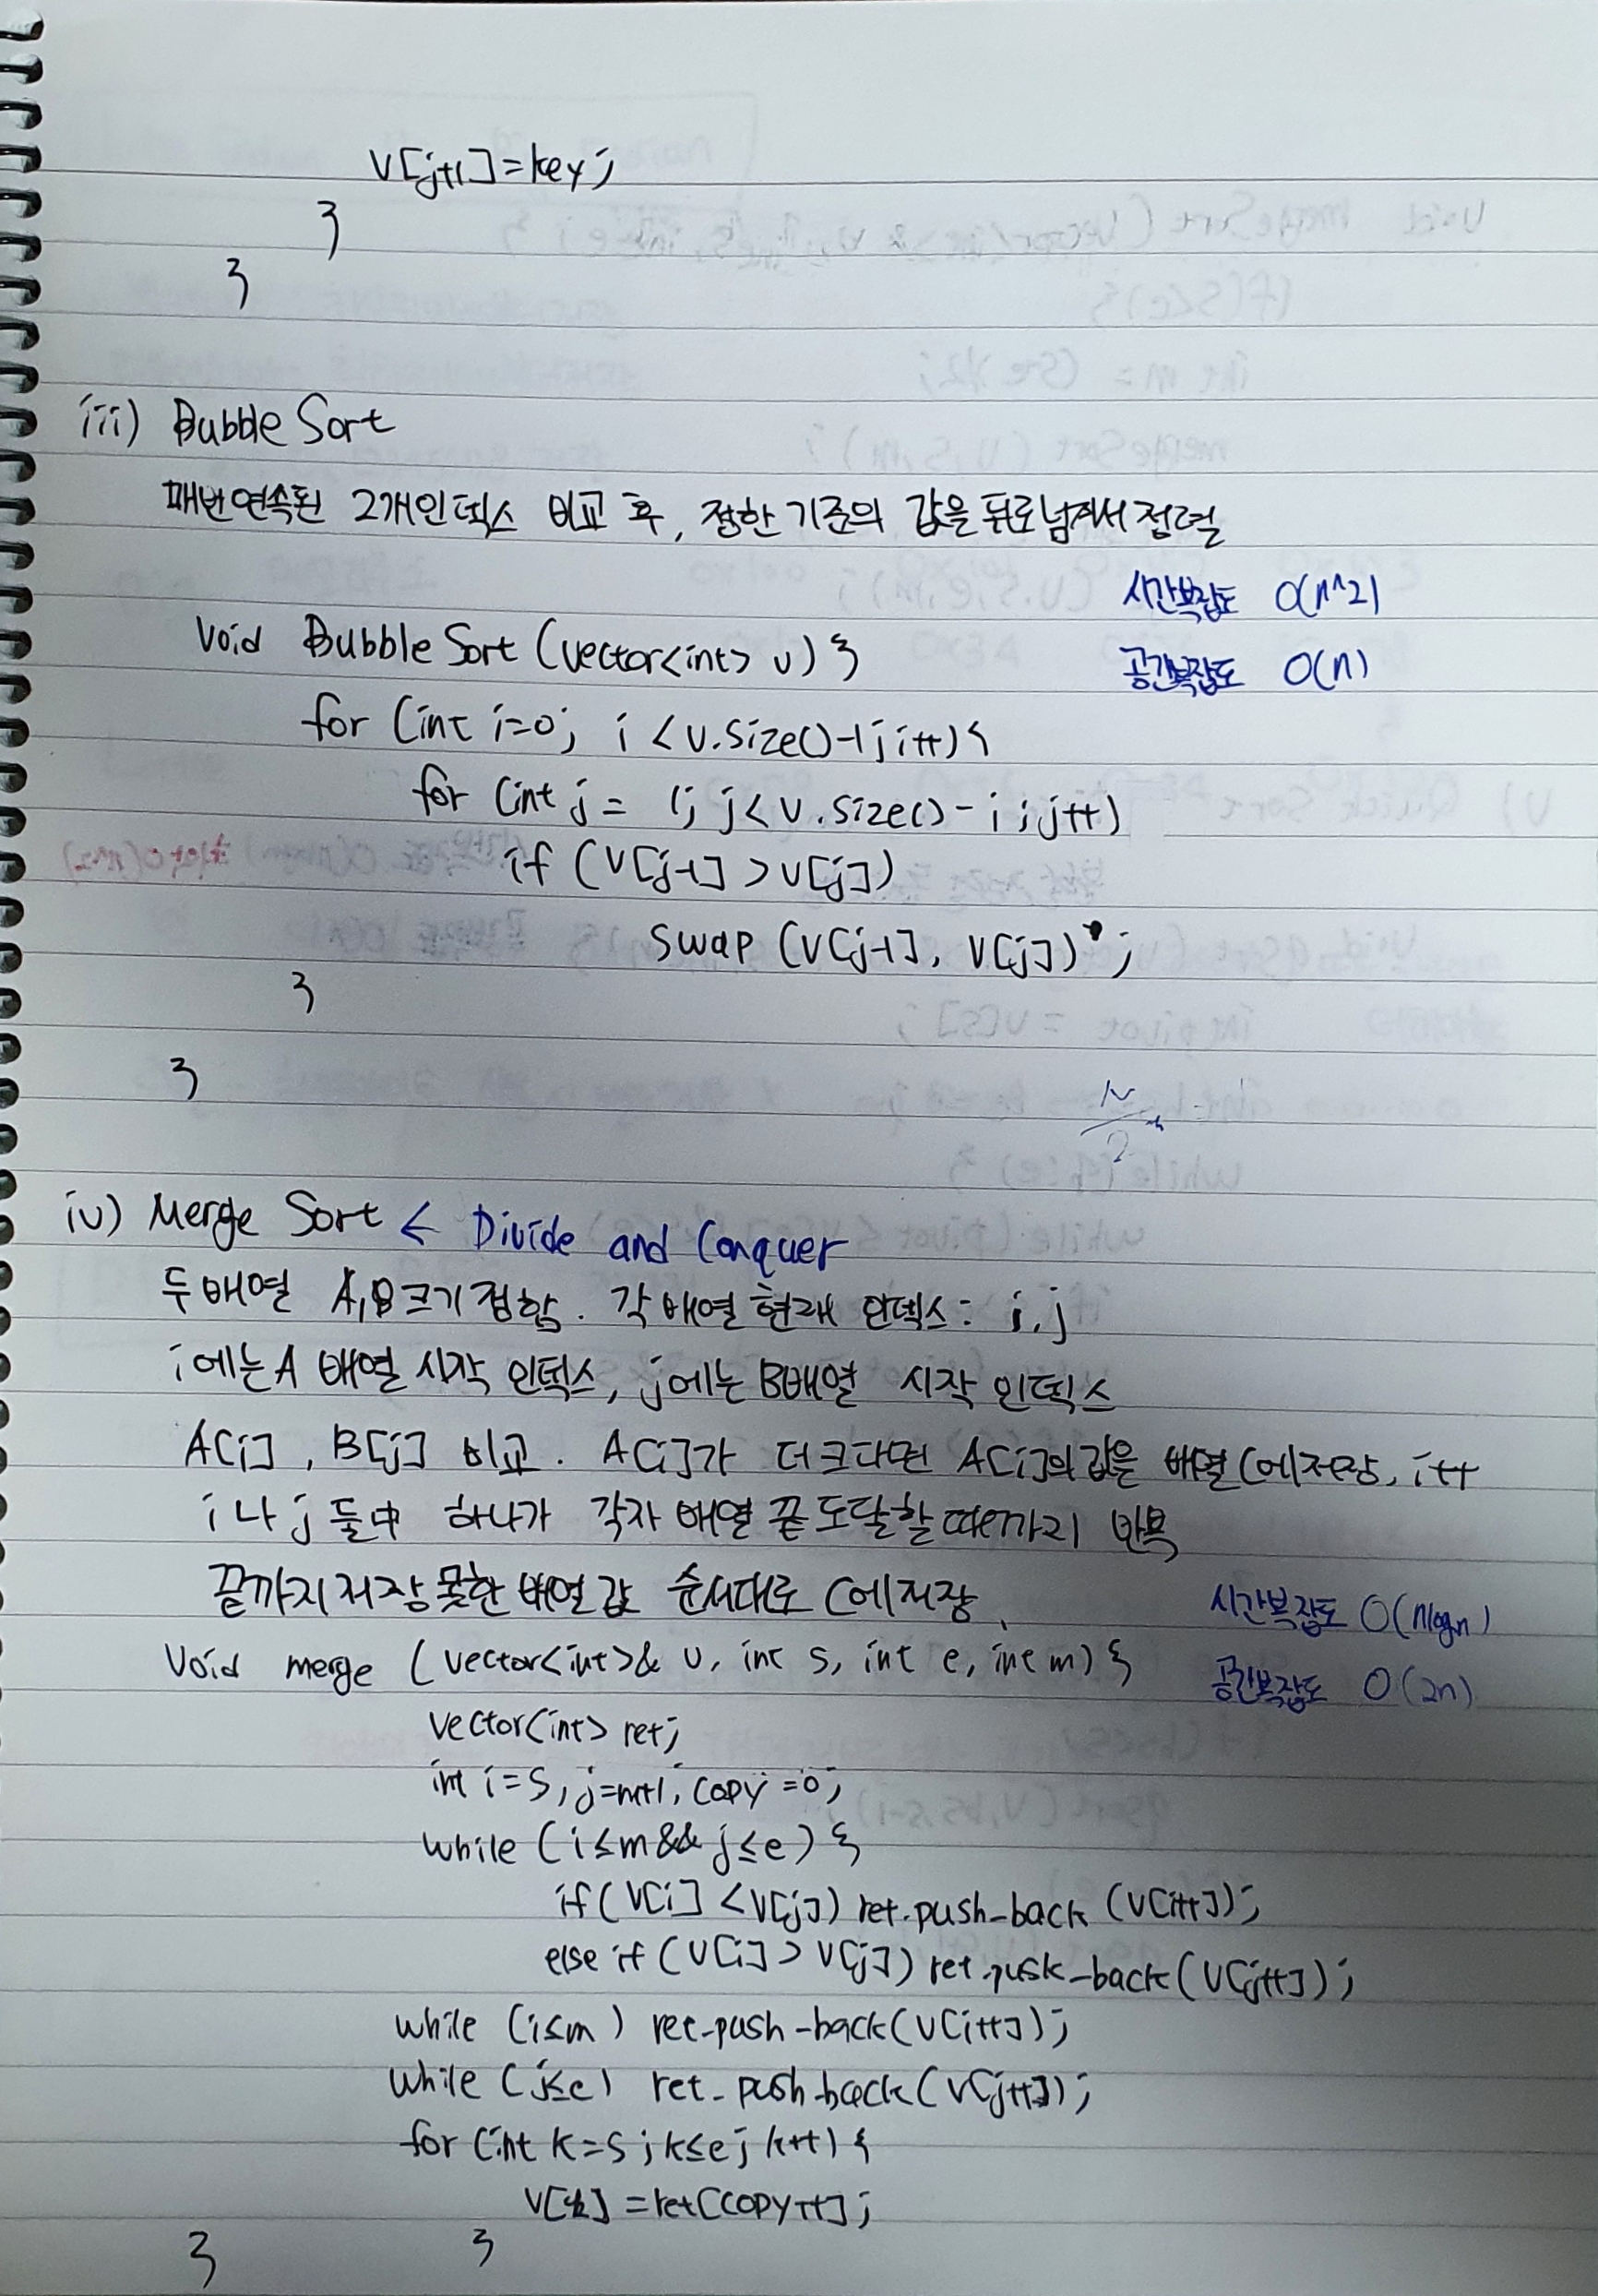 v[j+1]=key;
}
}
iii) Bubble Sort
매번 연속된 2개 인덱스 비교 후, 정한 기준의 값을 뒤로 넘겨서 정렬
시간복잡도 O(n^2)
void BubbleSort (vector<int> v) {
공간복잡도 O(n)
for (int i=0; i < v.size()-1; i++) {
for (int j = 1; j < v.size() - i ; j++)
if (v[j-1] > v[j])
swap (v[j-1], v[j]) ;
}
}
N
2
iv) Merge Sort ← Divide and Conquer
두 배열 A,B 크기 정함. 각 배열 현재 인덱스: i, j
i에는 A 배열 시작 인덱스, j에는 B배열 시작 인덱스
A[i], B[j] 비교. A[i]가 더 크다면 A[i]의 값을 배열 C에 저장, i++
i나 j 둘中 하나가 각자 배열 끝 도달할 때까지 반복
끝까지 저장 못한 배열 값 순서대로 C에 저장.
시간복잡도 O(nlogn)
void merge (vector<int>& v, int s, int e, int m) {
공간복잡도 O(2n)
vector<int> ret;
int i=s, j=m+1, copy=0;
while (i≤m && j≤e) {
if (v[i] < v[j]) ret.push_back (v[i++]);
else if (v[i] > v[j]) ret.push_back (v[j++]);
while (i≤m) ret.push_back(v[i++]);
while (j≤e) ret.push_back(v[j++]);
for (int k=s ; k≤e; k++) {
v[k] = ret[copy++];
} }